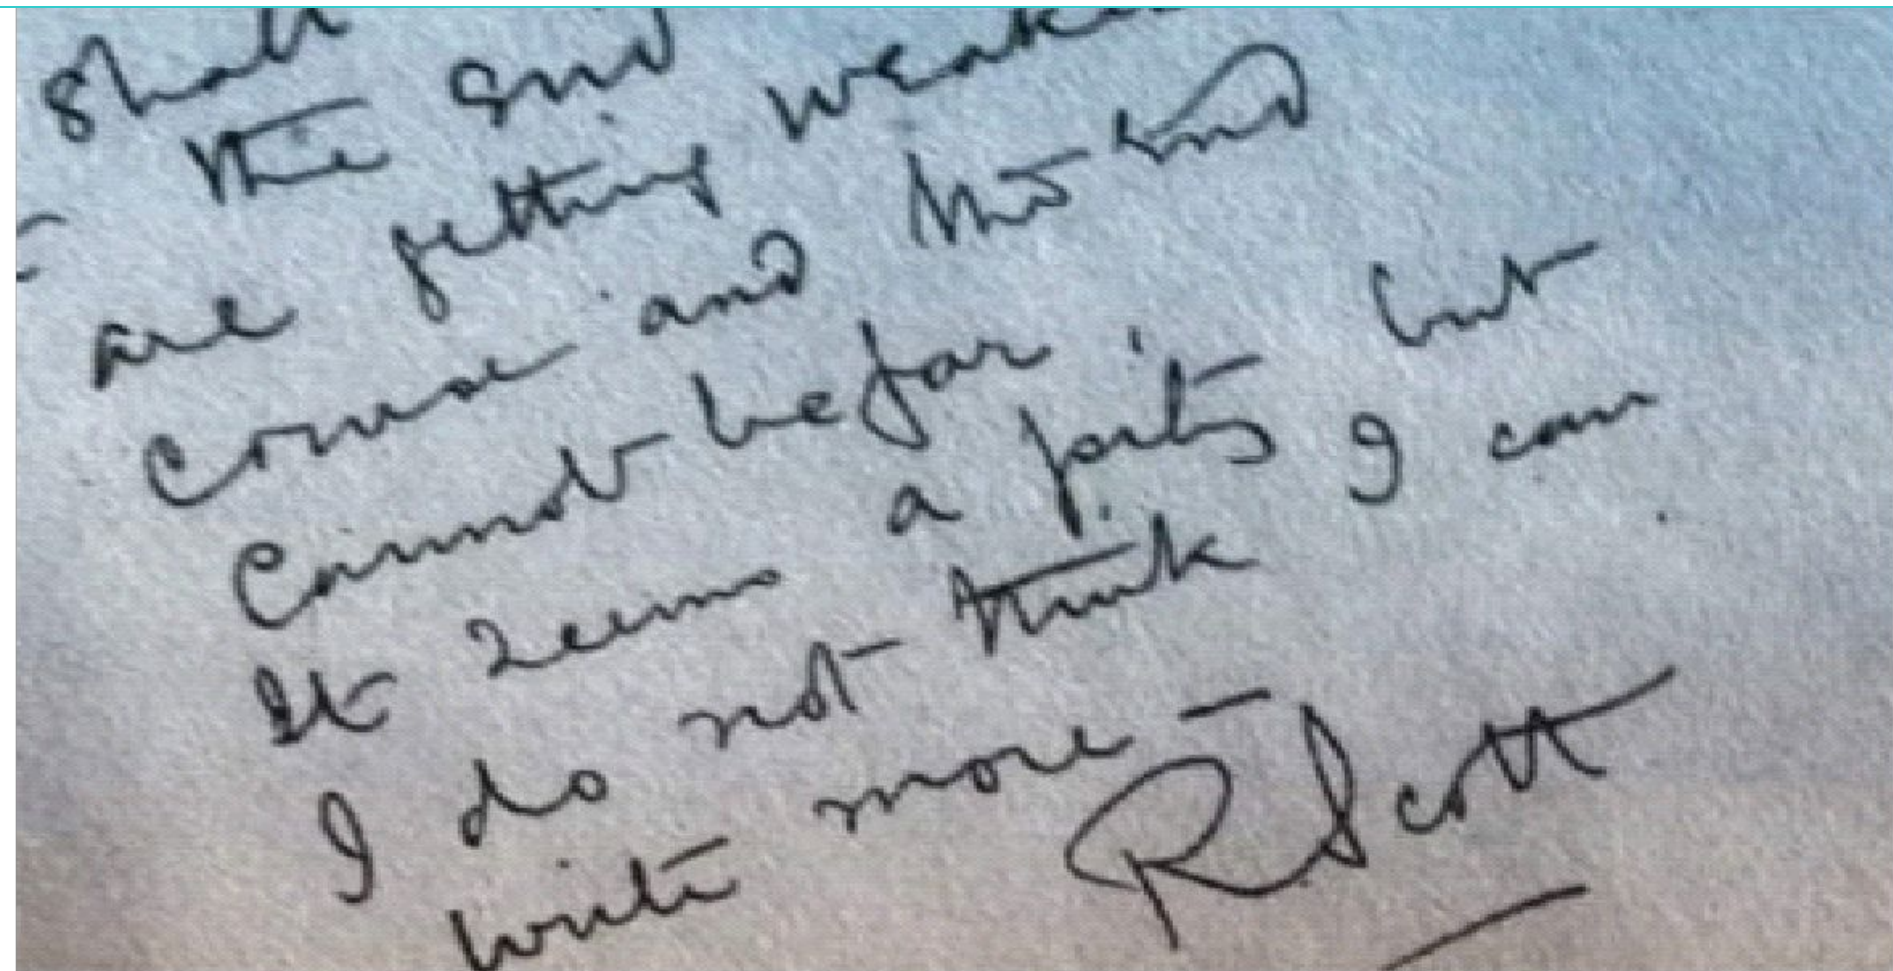 shall
the end
are getting weaker
course and the end
Cannot be far
It seems a pity but
I do not think I can
write more –
R Scott